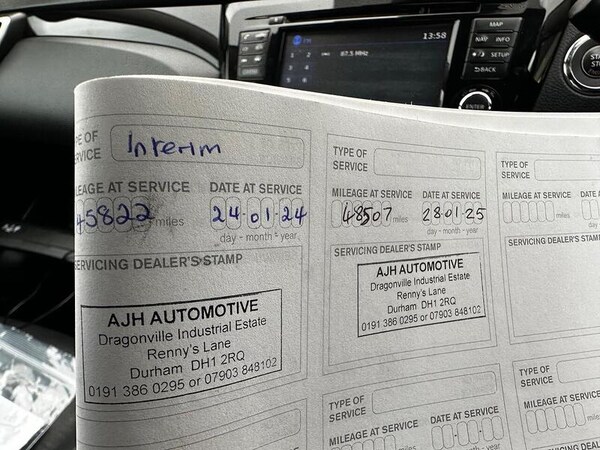 13:58
87.5 MHz
MAP
NAV INFO
SETUP
BACK
ENTER
PE OF
VICE
Interim
LEAGE AT SERVICE
45822 miles
DATE AT SERVICE
24·01·24
day - month - year
SERVICING DEALER'S STAMP
AJH AUTOMOTIVE
Dragonville Industrial Estate
Renny's Lane
Durham DH1 2RQ
0191 386 0295 or 07903 848102
TYPE OF
SERVICE
MILEAGE AT SERVICE
48507 miles
DATE AT SERVICE
28·01·25
day - month - year
SERVICING DEALER'S STAMP
AJH AUTOMOTIVE
Dragonville Industrial Estate
Renny's Lane
Durham DH1 2RQ
0191 386 0295 or 07903 848102
TYPE OF
SERVICE
MILEAGE AT SERVICE
miles
SERVICING DEALER'S STAMP
TYPE OF
SERVICE
MILEAGE AT SERVICE
miles
DATE AT SERVICE
day - month - year
TYPE OF
SERVICE
MILEAGE AT SERVICE
miles